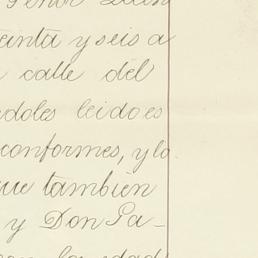 Señor Juan
cinta y seis a
calle del
doles leidoes
conformes, y lo
que tambien
y Don Pa-